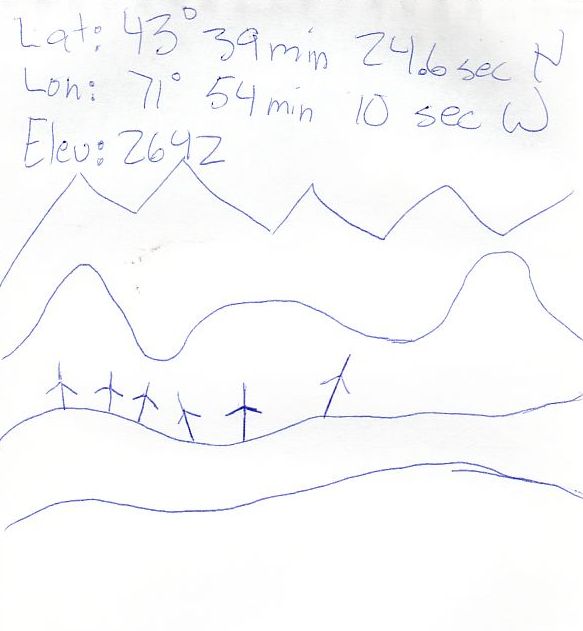 Lat: 43° 39min 24.6sec N
Lon: 71° 54min 10 sec W
Elev: 2642